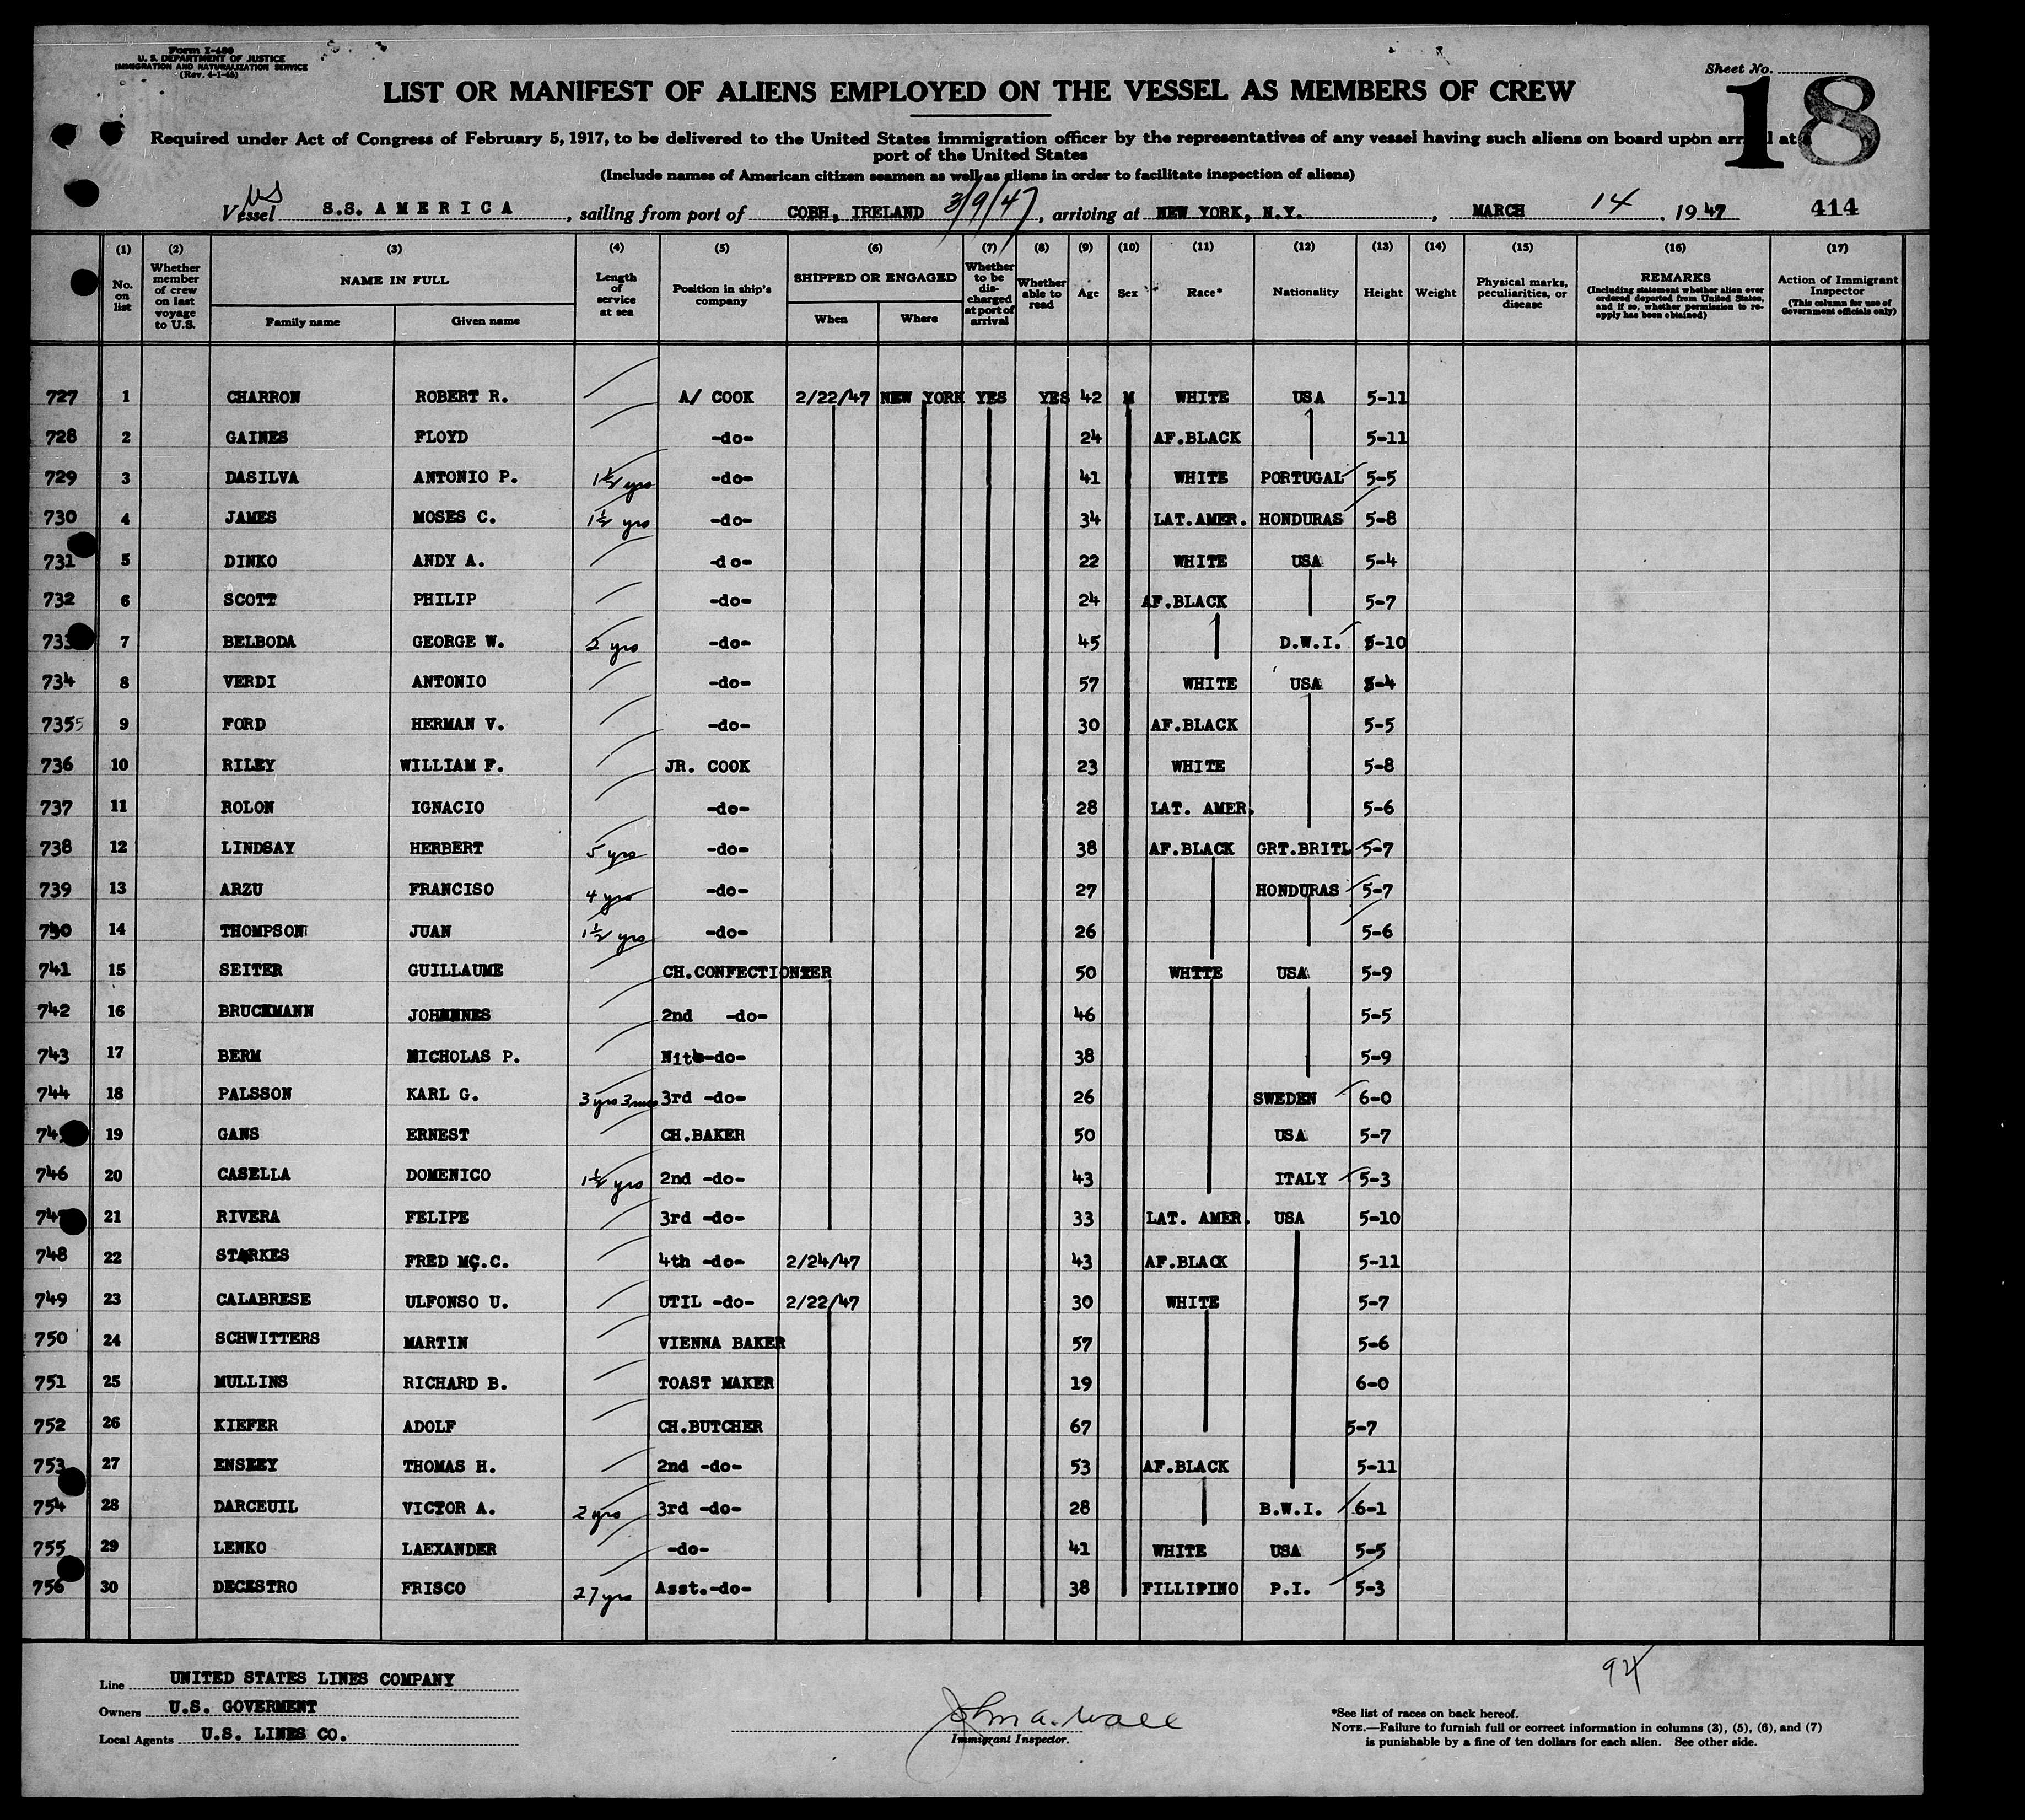 Form I-480
U. S. DEPARTMENT OF JUSTICE
IMMIGRATION AND NATURALIZATION SERVICE
(Rev. 4-1-45)
Sheet No.
18
LIST OR MANIFEST OF ALIENS EMPLOYED ON THE VESSEL AS MEMBERS OF CREW
Required under Act of Congress of February 5, 1917, to be delivered to the United States immigration officer by the representatives of any vessel having such aliens on board upon arrival at a
port of the United States
(Include names of American citizen seamen as well as aliens in order to facilitate inspection of aliens)
US
Vessel S.S. AMERICA, sailing from port of COBH, IRELAND 3/9/47, arriving at NEW YORK, N.Y., MARCH 14, 1947 414
(1) (2) (3) (4) (5) (6) (7) (8) (9) (10) (11) (12) (13) (14) (15) (16) (17)
No. on list
Whether member of crew on last voyage to U.S.
NAME IN FULL
Family name Given name
Length of service at sea
Position in ship's company
SHIPPED OR ENGAGED
When Where
Whether to be discharged at port of arrival
Whether able to read
Age
Sex
Race*
Nationality
Height
Weight
Physical marks, peculiarities, or disease
REMARKS
(Including statement whether alien ever ordered deported from United States, and if so, whether permission to reapply has been obtained)
Action of Immigrant Inspector
(This column for use of Government officials only)
727 1 CHARRON ROBERT R. A/ COOK 2/22/47 NEW YORK YES YES 42 M WHITE USA 5-11
728 2 GAINES FLOYD -do- 24 AF.BLACK 5-11
729 3 DASILVA ANTONIO P. 1½ yrs -do- 41 WHITE PORTUGAL 5-5
730 4 JAMES MOSES C. 1½ yrs -do- 34 LAT.AMER. HONDURAS 5-8
731 5 DINKO ANDY A. -do- 22 WHITE USA 5-4
732 6 SCOTT PHILIP -do- 24 AF.BLACK 5-7
733 7 BELBODA GEORGE W. 2 yrs -do- 45 D.W.I. 5-10
734 8 VERDI ANTONIO -do- 57 WHITE USA 5-4
7355 9 FORD HERMAN V. -do- 30 AF.BLACK 5-5
736 10 RILEY WILLIAM F. JR. COOK 23 WHITE 5-8
737 11 ROLON IGNACIO -do- 28 LAT. AMER. 5-6
738 12 LINDSAY HERBERT 5 yrs -do- 38 AF.BLACK GRT.BRITL 5-7
739 13 ARZU FRANCISO 4 yrs -do- 27 HONDURAS 5-7
740 14 THOMPSON JUAN 1½ yrs -do- 26 5-6
741 15 SEITER GUILLAUME CH.CONFECTIONIER 50 WHITE USA 5-9
742 16 BRUCKMANN JOHANNES 2nd -do- 46 5-5
743 17 BERM NICHOLAS P. Nite-do- 38 5-9
744 18 PALSSON KARL G. 3 yrs 3 mos 3rd -do- 26 SWEDEN 6-0
74 19 GANS ERNEST CH.BAKER 50 USA 5-7
746 20 CASELLA DOMENICO 1½ yrs 2nd -do- 43 ITALY 5-3
74 21 RIVERA FELIPE 3rd -do- 33 LAT. AMER. USA 5-10
748 22 STARKES FRED MC.C. 4th -do- 2/24/47 43 AF.BLACK 5-11
749 23 CALABRESE ULFONSO U. UTIL -do- 2/22/47 30 WHITE 5-7
750 24 SCHWITTERS MARTIN VIENNA BAKER 57 5-6
751 25 MULLINS RICHARD B. TOAST MAKER 19 6-0
752 26 KIEFER ADOLF CH.BUTCHER 67 5-7
753 27 ENSLEY THOMAS H. 2nd -do- 53 AF.BLACK 5-11
754 28 DARCEUIL VICTOR A. 2 yrs 3rd -do- 28 B.W.I. 6-1
755 29 LENKO LAEXANDER -do- 41 WHITE USA 5-5
756 30 DECESTRO FRISCO 27 yrs Asst.-do- 38 FILLIPINO P.I. 5-3
Line UNITED STATES LINES COMPANY
Owners U.S. GOVERMENT
Local Agents U.S. LINES CO.
John A. Wall
Immigrant Inspector.
*See list of races on back hereof.
NOTE.—Failure to furnish full or correct information in columns (3), (5), (6), and (7)
is punishable by a fine of ten dollars for each alien. See other side.